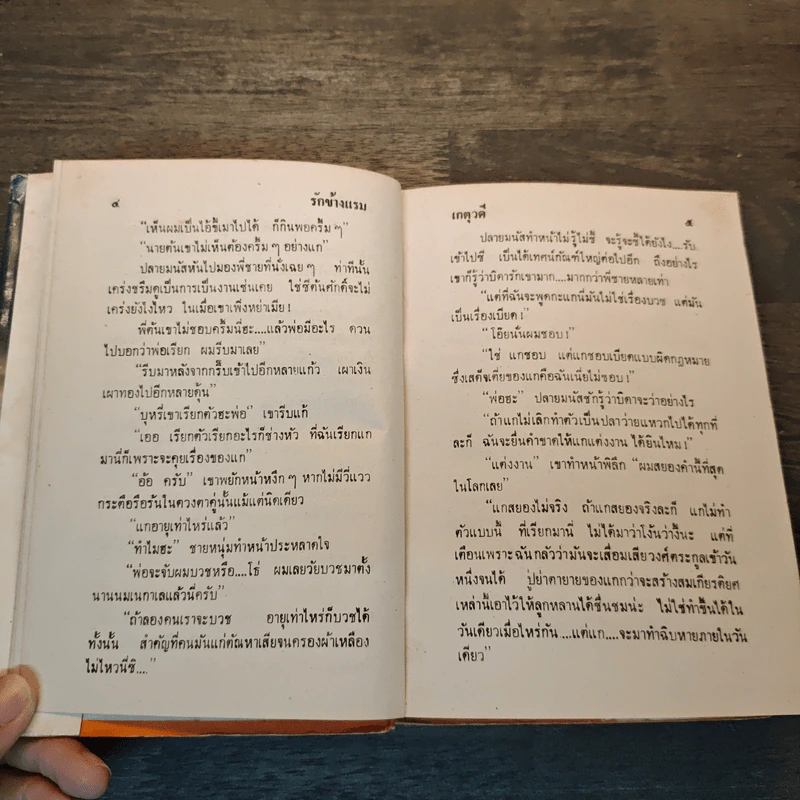 ๔ รักข้างแรม
“เห็นผมเป็นไอ้ขี้เมาไปได้ ก็กินพอครึ้ม ๆ”
“นายต้นเขาไม่เห็นต้องครึ้ม ๆ อย่างแก”
ปลายมนัสหันไปมองพี่ชายที่นั่งเฉย ๆ ท่าทีนั้น
เคร่งขรึมดูเป็นการเป็นงานเช่นเคย ใช่ซีต้นศักดิ์จะไม่
เคร่งยังไงไหว ในเมื่อเขาเพิ่งหย่าเมีย !
พี่ต้นเขาไม่ชอบครึ้มนี่ฮะ....แล้วพ่อมีอะไร ควน
ไปบอกว่าพ่อเรียก ผมรีบมาเลย”
“รีบมาหลังจากกรึ๊บเข้าไปอีกหลายแก้ว เผาเงิน
เผาทองไปอีกหลายตุ้น”
“บุหรี่เขาเรียกตัวฮะพ่อ” เขารีบแก้
“เออ เรียกตัวเรียกอะไรก็ช่างหัว ที่ฉันเรียกแก
มานี่ก็เพราะจะคุยเรื่องของแก”
“อ้อ ครับ” เขาพยักหน้าหงึก ๆ หากไม่มีวี่แวว
กระตือรือร้นในดวงตาคู่นั้นแม้แต่นิดเดียว
“แกอายุเท่าไหร่แล้ว”
“ทำไมฮะ” ชายหนุ่มทำหน้าประหลาดใจ
“พ่อจะจับผมบวชหรือ....โธ่ ผมเลยวัยบวชมาตั้ง
นานนมเนกาเลแล้วนี่ครับ”
“ถ้าลองคนเราจะบวช อายุเท่าไหร่ก็บวชได้
ทั้งนั้น สำคัญที่คนมันแก่ตัณหาเสียจนครองผ้าเหลือง
ไม่ไหวนี่ซิ....”
เกตุวดี ๕
ปลายมนัสทำหน้าไม่รู้ไม่ชี้ จะรู้จะชี้ได้ยังไง....รับ
เข้าไปซี เป็นได้เทศน์กัณฑ์ใหญ่ต่อไปอีก ถึงอย่างไร
เขาก็รู้ว่าบิดารักเขามาก....มากกว่าพี่ชายหลายเท่า
“แต่ที่ฉันจะพูดกะแกนี่มันไม่ใช่เรื่องบวช แต่มัน
เป็นเรื่องเบียด !”
“โอ๊ยนั่นผมชอบ !”
“ใช่ แกชอบ แต่แกชอบเบียดแบบผิดกฎหมาย
ซึ่งเสด็จเตี่ยของแกคือฉันเนี่ยไม่ชอบ !”
“พ่อฮะ” ปลายมนัสชักรู้ว่าบิดาจะว่าอย่างไร
“ถ้าแกไม่เลิกทำตัวเป็นปลาว่ายแหวกไปได้ทุกที่
ละก็ ฉันจะยื่นคำขาดให้แกแต่งงาน ได้ยินไหม !”
“แต่งงาน” เขาทำหน้าพิลึก “ผมสยองคำนี้ที่สุด
ในโลกเลย”
“แกสยองไม่จริง ถ้าแกสยองจริงละก็ แกไม่ทำ
ตัวแบบนี้ ที่เรียกมานี่ ไม่ได้มาว่าโง้นว่างี้นะ แต่ที่
เตือนเพราะฉันกลัวว่ามันจะเสื่อมเสียวงศ์ตระกูลเข้าวัน
หนึ่งจนได้ ปู่ย่าตายายของแกกว่าจะสร้างสมเกียรติยศ
เหล่านี้เอาไว้ให้ลูกหลานได้ชื่นชมน่ะ ไม่ใช่ทำขึ้นได้ใน
วันเดียวเมื่อไหร่กัน ....แต่แก....จะมาทำฉิบหายภายในวัน
เดียว”